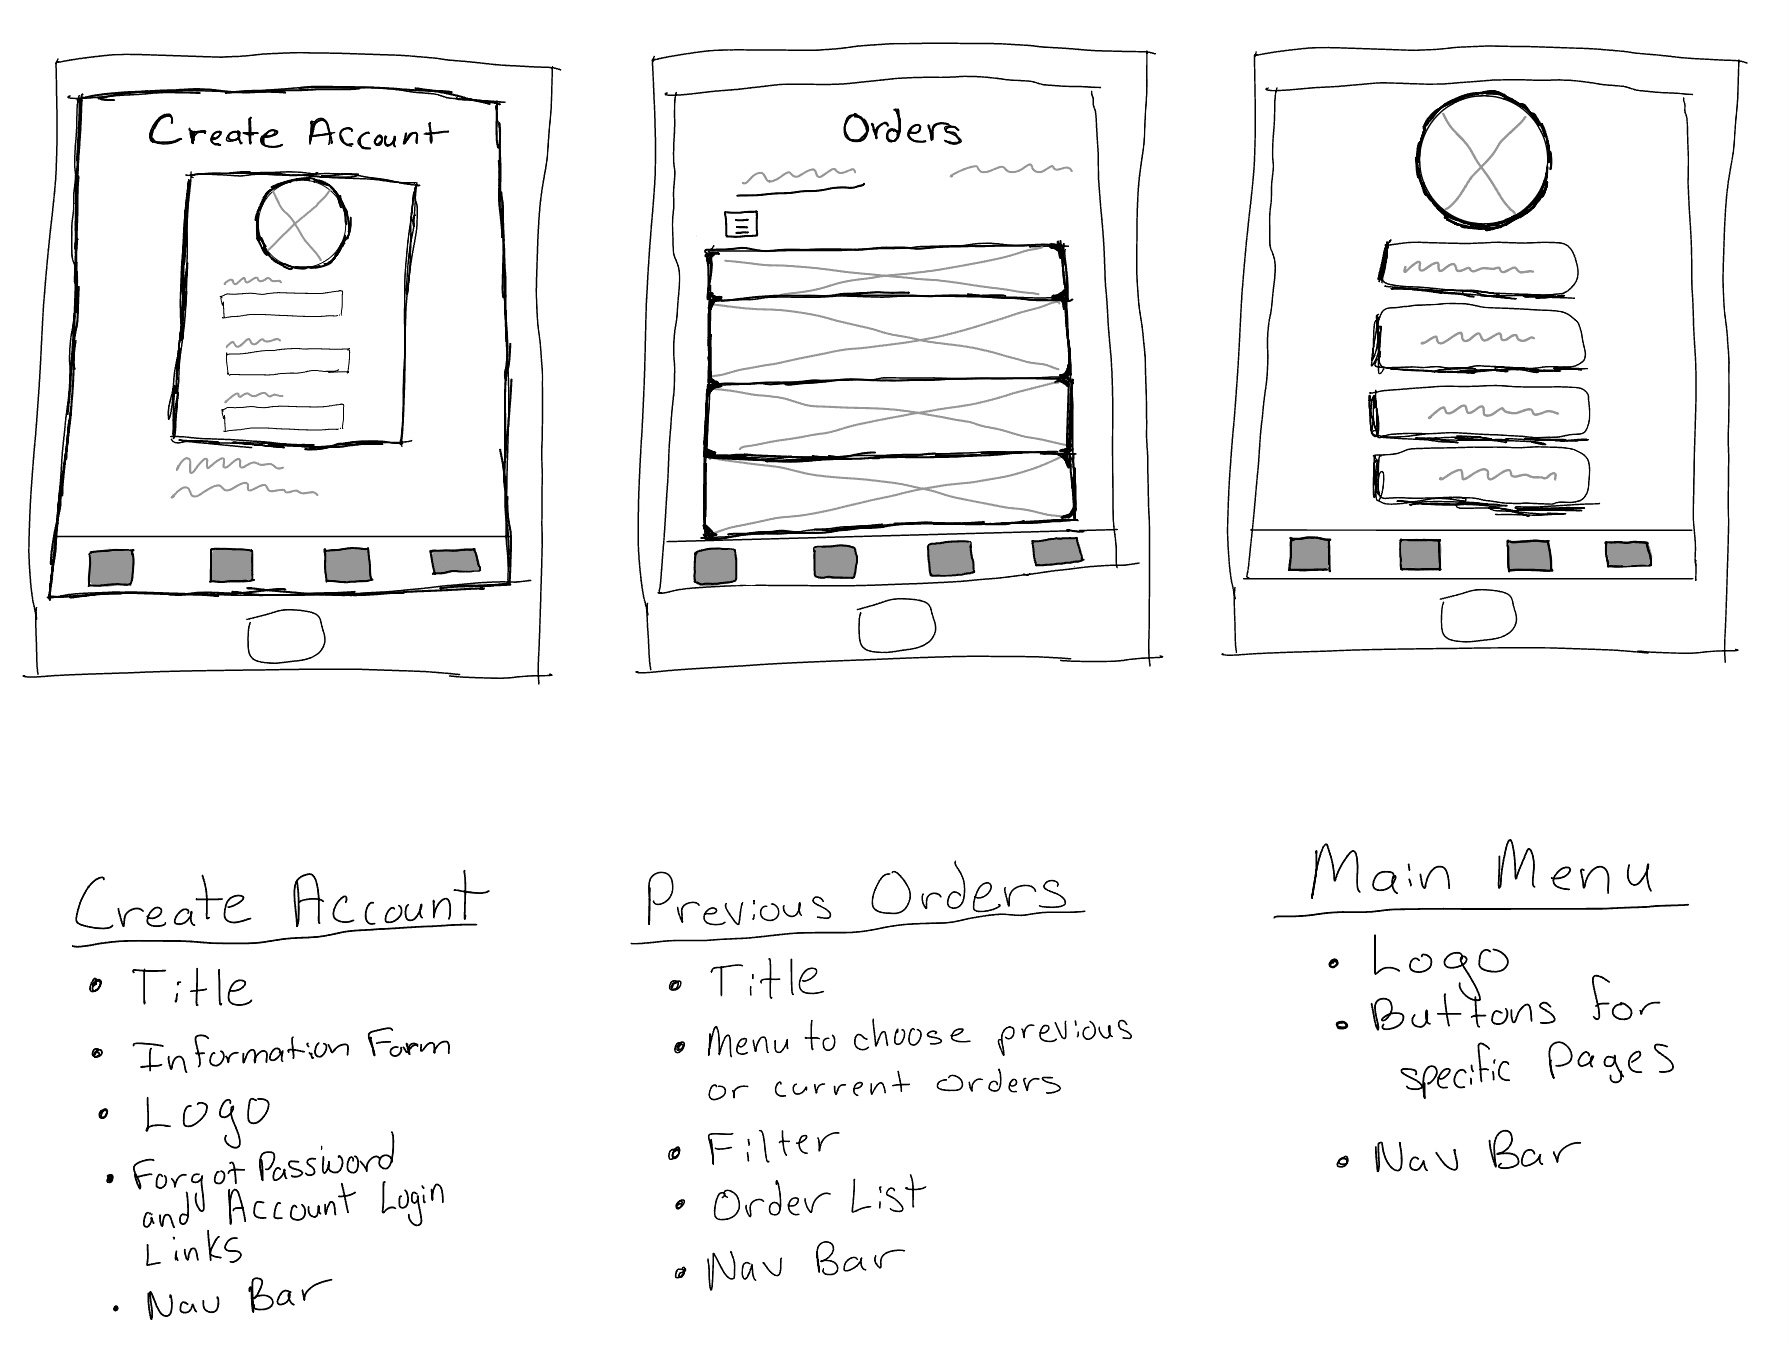 Create Account
Orders
Create Account
• Title
• Information Form
• Logo
• Forgot Password
and Account Login
Links
• Nav Bar
Previous Orders
• Title
• Menu to choose previous
or current orders
• Filter
• Order List
• Nav Bar
Main Menu
• Logo
• Buttons for
specific Pages
• Nav Bar